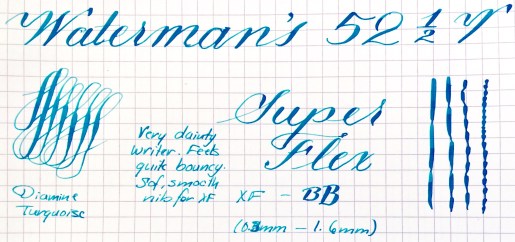 Waterman's 52 1/2 V
Super
Flex
Very dainty
writer. Feels
quite bouncy.
Sof, smooth
nib for XF
XF - BB
(0.3mm - 1.6mm)
Diamine
Turquoise